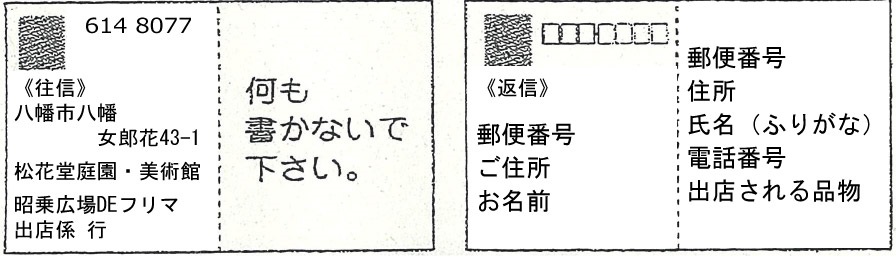 614 8077
《往信》
八幡市八幡
女郎花43-1
松花堂庭園・美術館
昭乗広場DEフリマ
出店係 行
何も
書かないで
下さい。
《返信》
郵便番号
ご住所
お名前
郵便番号
住所
氏名（ふりがな）
電話番号
出店される品物